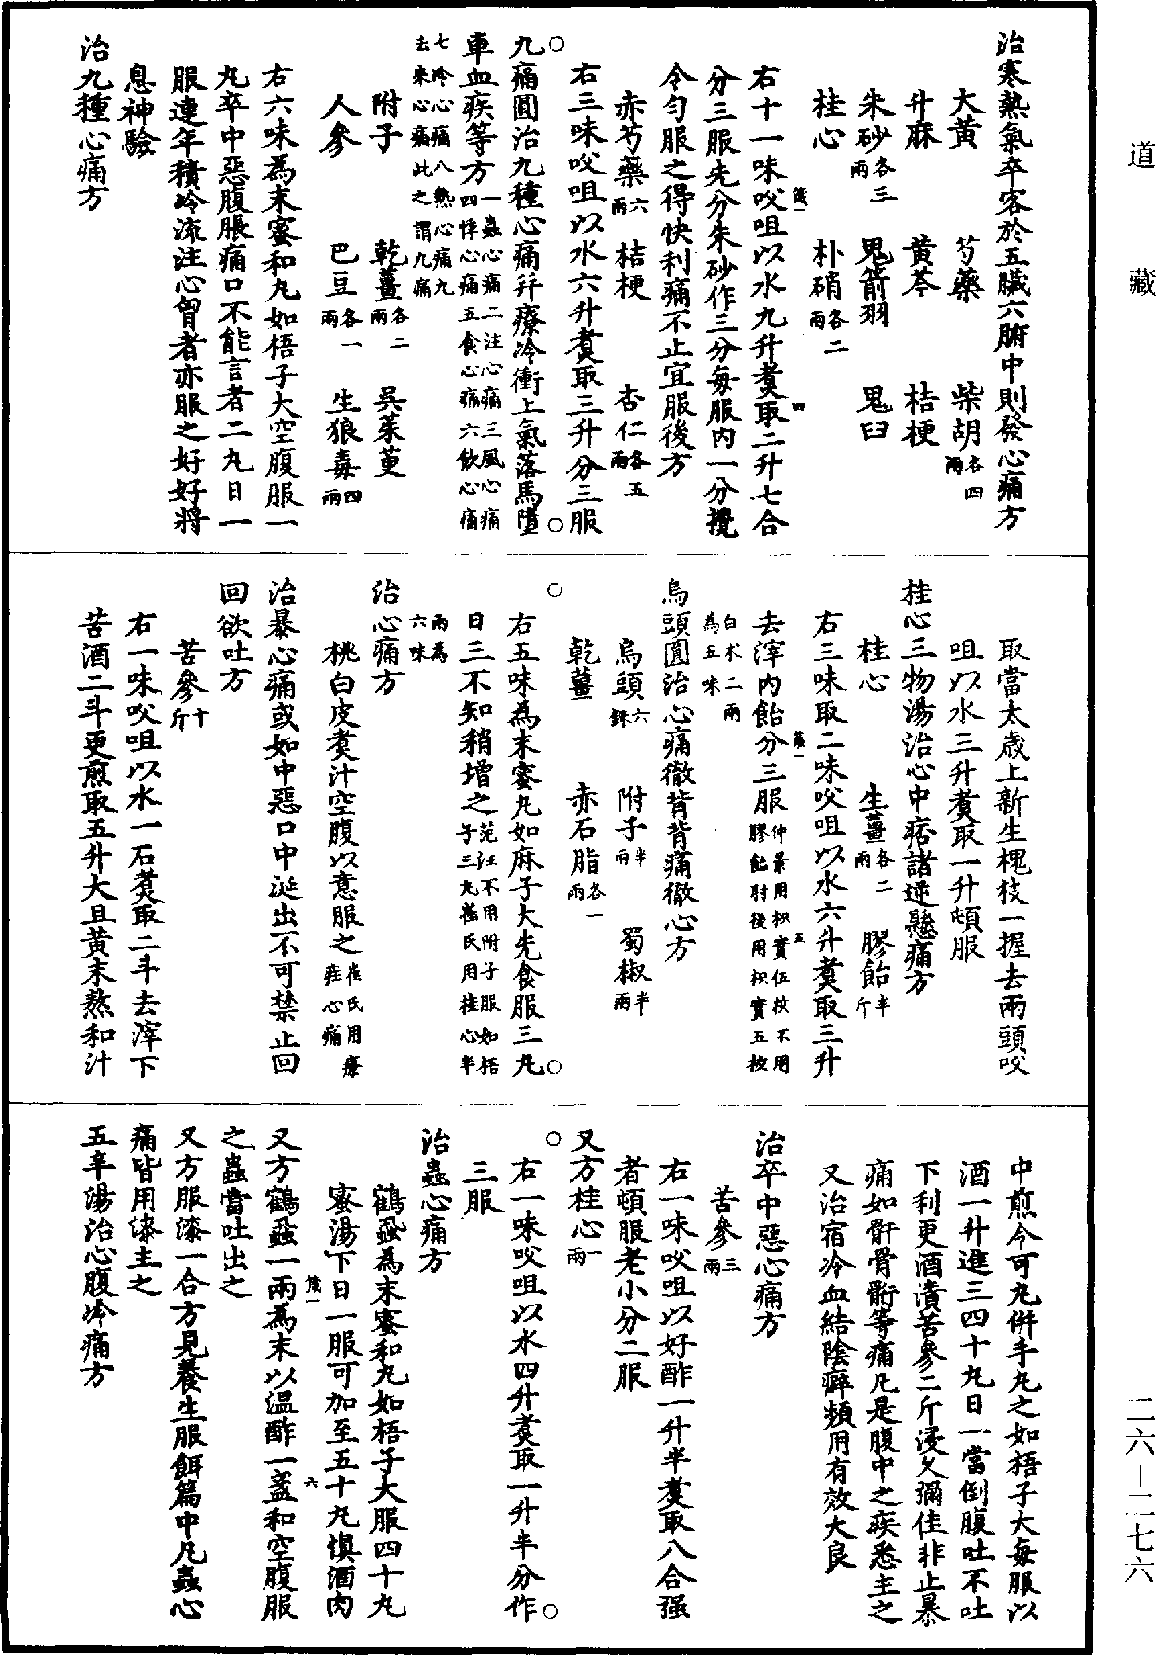 道藏
治寒熱氣卒客於五臟六腑中則發心痛方
大黃　芍藥　柴胡各四兩
升麻　黃芩　桔梗
朱砂各三兩　鬼箭羽　鬼臼
桂心　朴硝各二兩
右十一味㕮咀以水九升煑取二升七合
分三服先分朱砂作三分每服內一分攪
令勻服之得快利痛不止宜服後方
赤芍藥六兩　桔梗　杏仁各五兩
右三味㕮咀以水六升煑取三升分三服
九痛圓治九種心痛并療冷衝上氣落馬墮
車血疾等方一蟲心痛二注心痛三風心痛四悸心痛五食心痛六飲心痛
七冷心痛八熱心痛九去來心痛此之謂九痛
附子　乾薑各二兩　吳茱萸
人參　巴豆各一兩　生狼毒四兩
右六味為末蜜和丸如梧子大空腹服一
丸卒中惡腹脹痛口不能言者二丸日一
服連年積冷流注心胷者亦服之好好將
息神驗
治九種心痛方
取當太歲上新生槐枝一握去兩頭㕮
咀以水三升煑取一升頓服
桂心三物湯治心中痞諸逆懸痛方
桂心　生薑各二兩　膠飴半斤
右三味取二味㕮咀以水六升煑取三升
去滓內飴分三服仲景用枳實伍枚不用膠飴肘後用枳實五枚
白朮二兩為五味
烏頭圓治心痛徹背背痛徹心方
烏頭六銖　附子半兩　蜀椒半兩
乾薑　赤石脂各一兩
右五味為末蜜丸如麻子大先食服三丸
日三不知稍增之范汪不用附子服如梧子三丸崔氏用桂心半
兩為六味
治心痛方
桃白皮煑汁空腹以意服之崔氏用療疰心痛
治暴心痛或如中惡口中涎出不可禁止回
回欲吐方
苦參十斤
右一味㕮咀以水一石煑取二斗去滓下
苦酒二斗更煎取五升大豆黃末熬和汁
中煎令可丸併手丸之如梧子大每服以
酒一升進三四十丸日一當倒腹吐不吐
下利更酒漬苦參二斤浸久彌佳非止暴
痛如骭骨䯒等痛凡是腹中之疾悉主之
又治宿冷血結陰癖頻用有效大良
治卒中惡心痛方
苦參三兩
右一味㕮咀以好酢一升半煑取八合强
者頓服老小分二服
又方桂心一兩
右一味㕮咀以水四升煑取一升半分作
三服
治蟲心痛方
鶴蝨為末蜜和丸如梧子大服四十丸
蜜湯下日一服可加至五十丸慎酒肉
又方鶴蝨一兩為末以溫酢一盞和空腹服
之蟲當吐出之
又方服漆一合方見養生服餌篇中凡蟲心
痛皆用漆主之
五辛湯治心腹冷痛方
二六－二七六